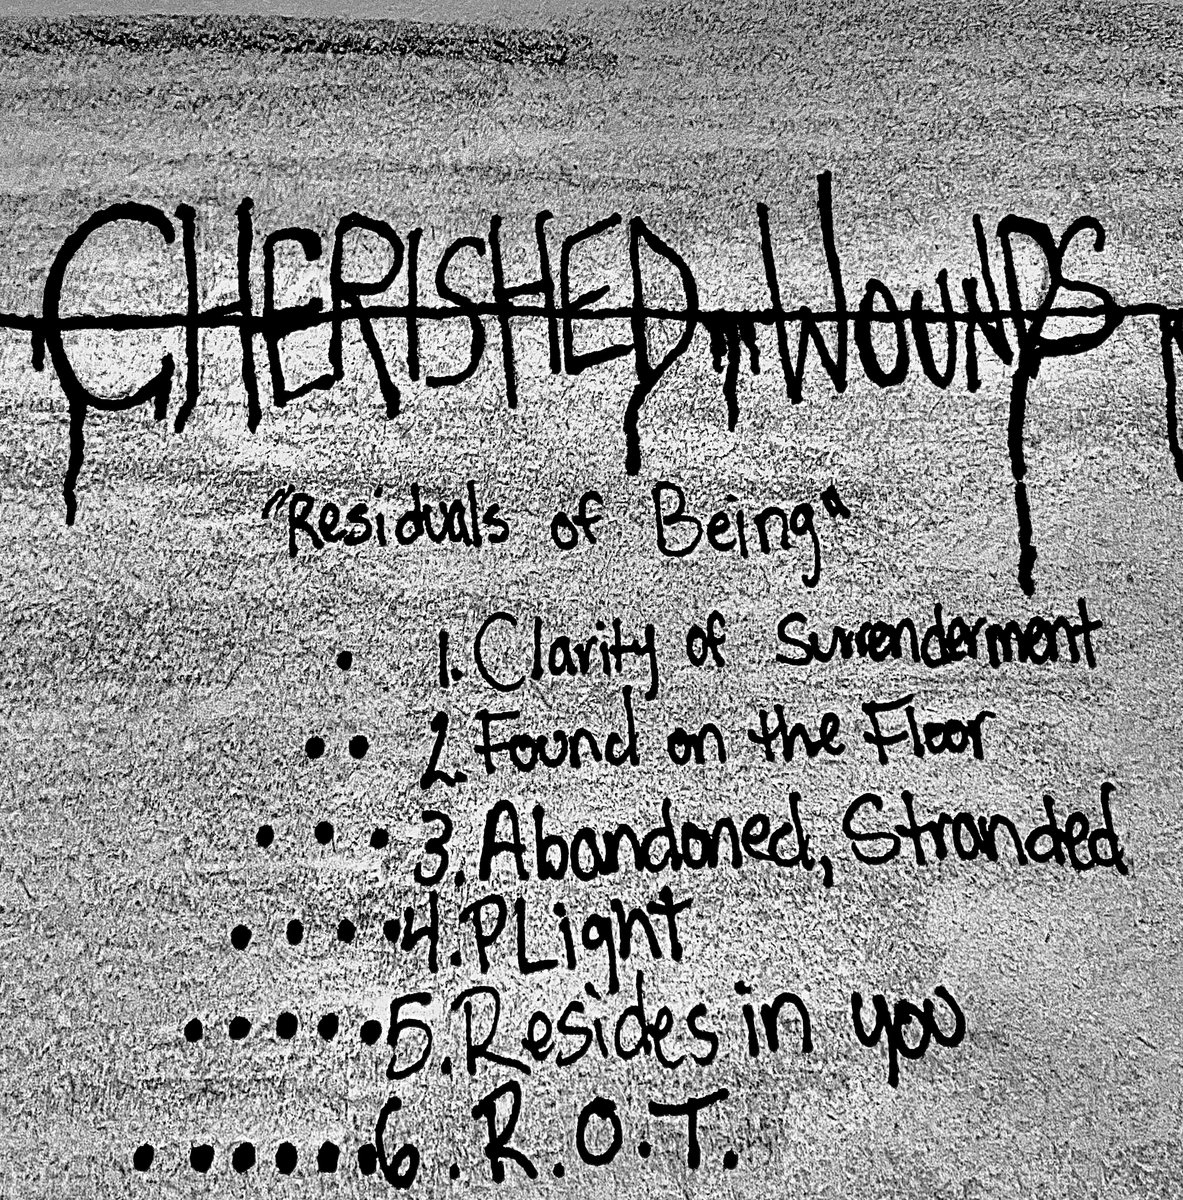 CHERISHED WOUNDS
"Residuals of Being"
1. Clarity of Surrenderment
2. Found on the Floor
3. Abandoned, Stranded
4. PLight
5. Resides in you
6. R.O.T.